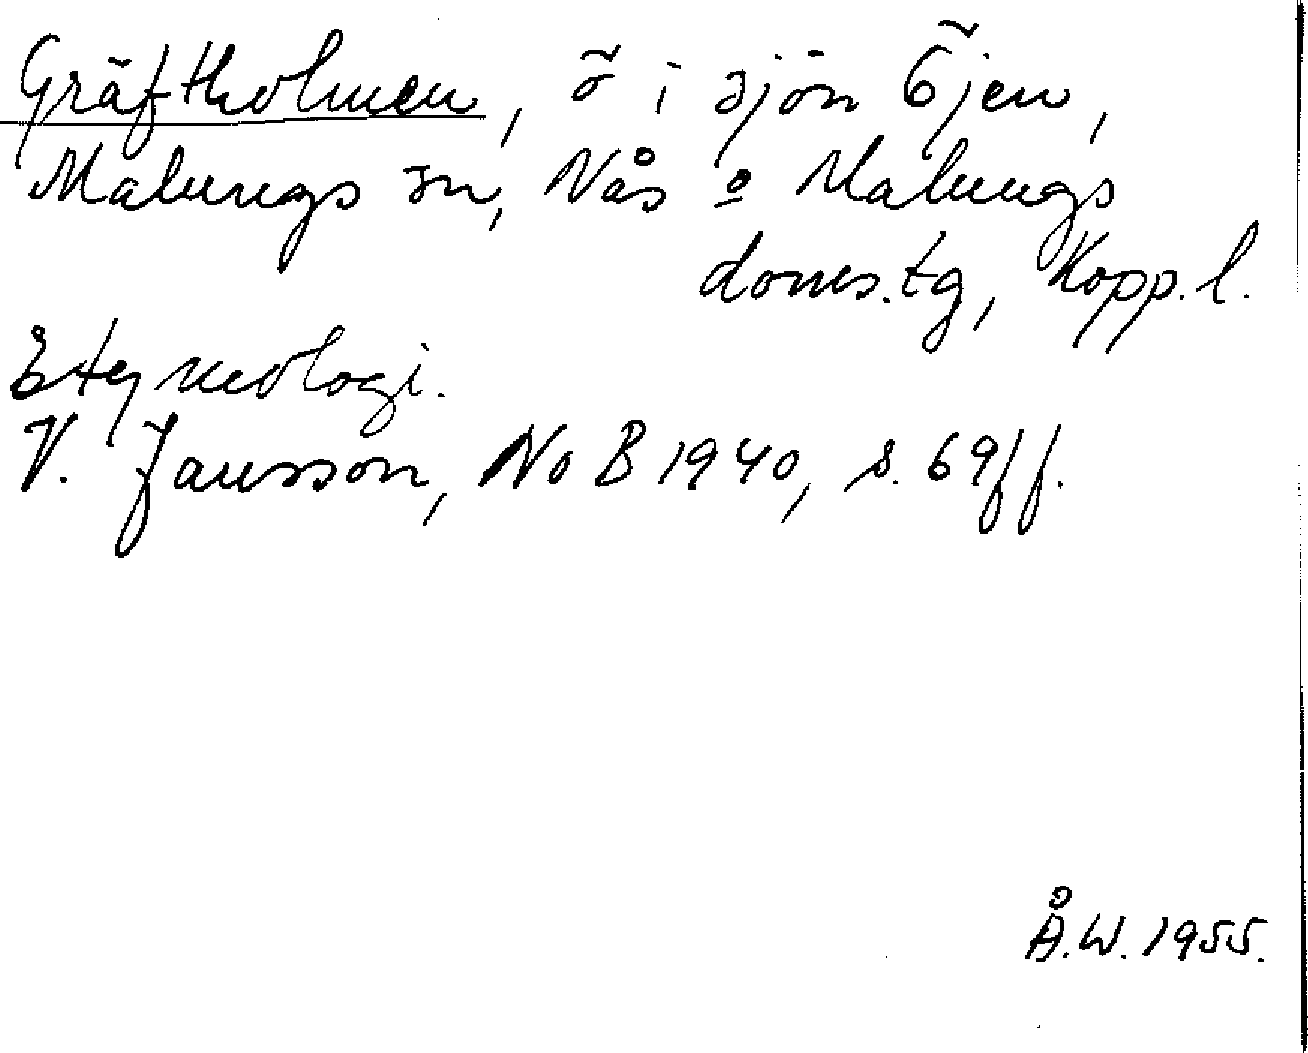 Gräftholmen, ö i sjön Öjen,
Malungs sn, Nås o Malungs
doms.tg, Kopp.l.
Etymologi.
V. Jansson, NoB 1940, s. 69ff.
Å.W. 1955.